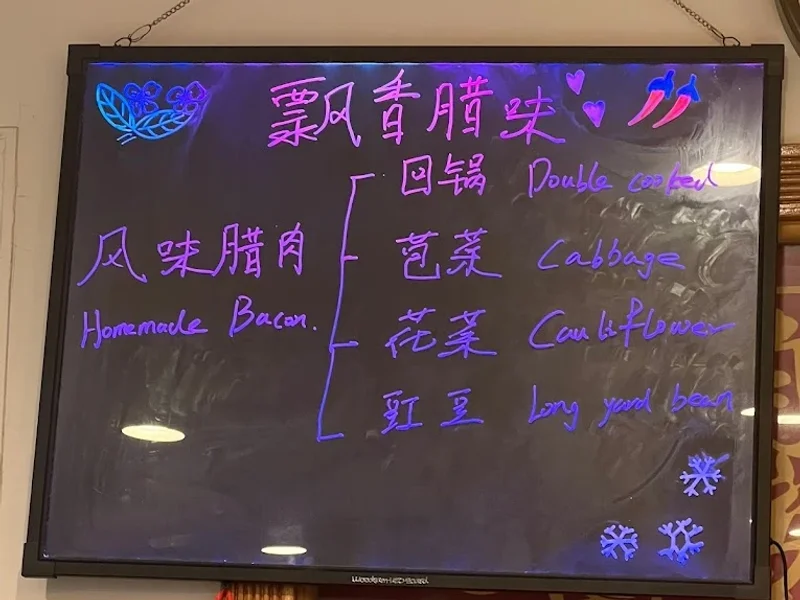 飘香腊味
回锅 Double cooked
苞菜 Cabbage
风味腊肉
Homemade Bacon.
花菜 Cauliflower
豇豆 Long yard bean